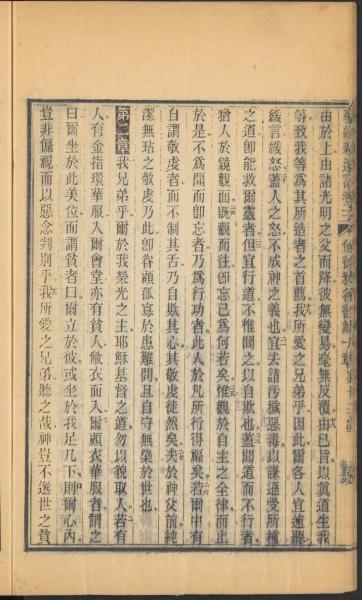 由於上由諸光明之父而降彼無變易毫無反覆由己旨以眞道生我
等致我等為其所造者之首薦我所愛之兄弟乎因此爾各人宜速聽
緩言緩怒蓋人之怒不成神之義也宜去諸汚穢惡毒以謙遜受所種
之道卽能救爾靈者但宜行道不惟聞之以自欺也蓋聞道而不行者
猶人於鏡觀面既觀而往卽忘己為何若矣惟觀於自主之全律而止
於是不為聞而卽忘者乃為行功者此人於凡所行得福矣若爾中有
自謂敬虔者而不制其舌乃自欺其心其敬虔徒然矣夫於神父前純
潔無玷之敬虔乃此卽眷顧孤寡於患難間且自守無染於世也
第二章我兄弟乎爾於我榮光之主耶穌基督之道勿以貌取人若有
人有金指環華服入爾會堂亦有貧人敝衣而入爾顧衣華服者謂之
曰爾坐於此美位而謂貧者曰爾立於彼或坐於我足几下則爾心內
豈非偏視而以惡念判別乎我所愛之兄弟聽之哉神豈不選世之貧